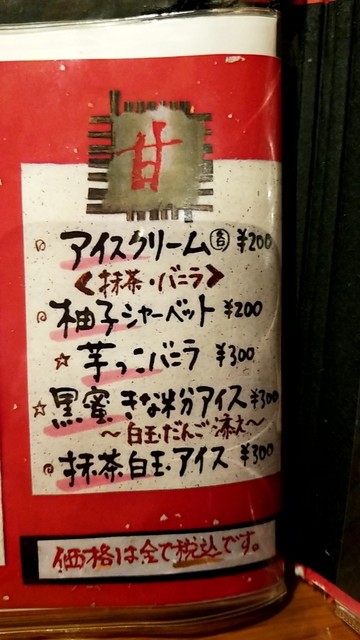 甘
アイスクリーム㊂ ¥200
<抹茶・バニラ>
柚子シャーベット ¥200
☆芋っこバニラ ¥300
☆黒蜜きな粉アイス ¥300
～白玉だんご添え～
抹茶白玉アイス ¥300
価格は全て税込です。